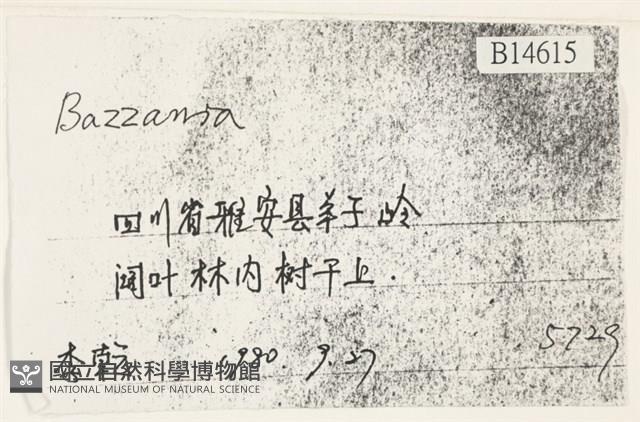 B14615
Bazzania
四川省雅安县羊子岭
阔叶林内树干上.
李乾 1980. 9. 27 5729
國立自然科學博物館
NATIONAL MUSEUM OF NATURAL SCIENCE